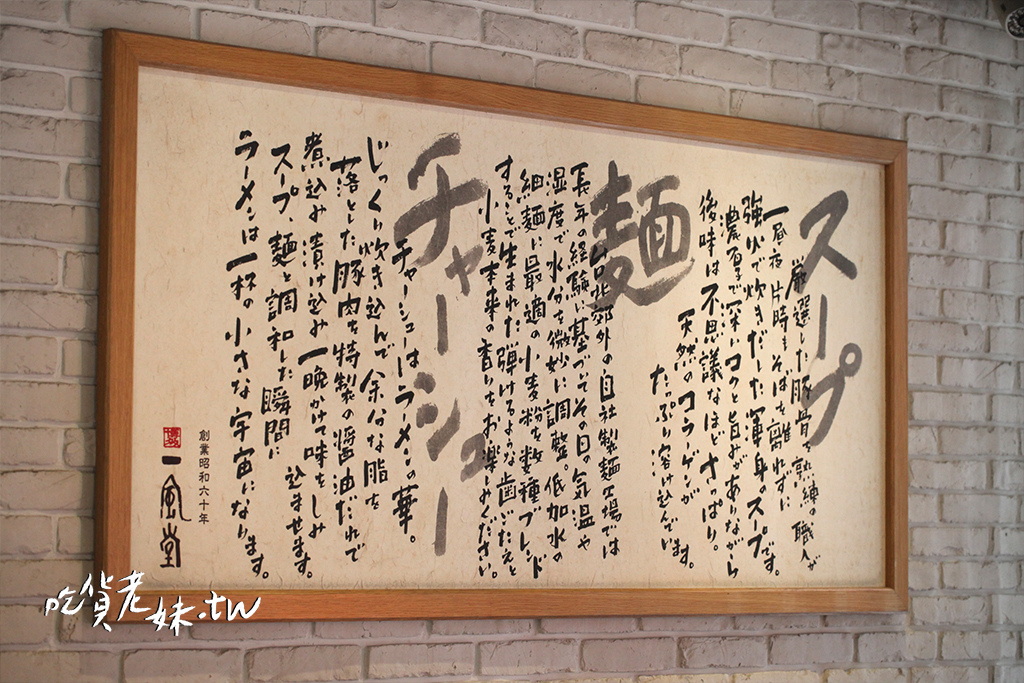 スープ
厳選した豚骨を熟練の職人が
一昼夜 片時もそばを離れずに
強火で炊きだした渾身のスープです。
濃厚で深いコクと旨みがありながら
後味は不思議なほどさっぱり。
天然のコラーゲンが
たっぷり溶け込んでいます。
麺
台北郊外の自社製麺工場では
長年の経験に基づいてその日の気温や
湿度で水分を微妙に調整。低加水の
細麺に最適の小麦粉を数種ブレンド
することで生まれた弾けるような歯ごたえと
小麦本来の香りをお楽しみください。
チャーシュー
チャーシューはラーメンの華。
じっくり炊き込んで余分な脂を
落とした豚肉を特製の醤油だれで
煮込み漬け込み一晩かけて味をしみ
込ませます。
スープ、麺と調和した瞬間に
ラーメンは一杯の小さな宇宙になります。
創業昭和六十年
博多
一風堂
吃貨老妹.tw